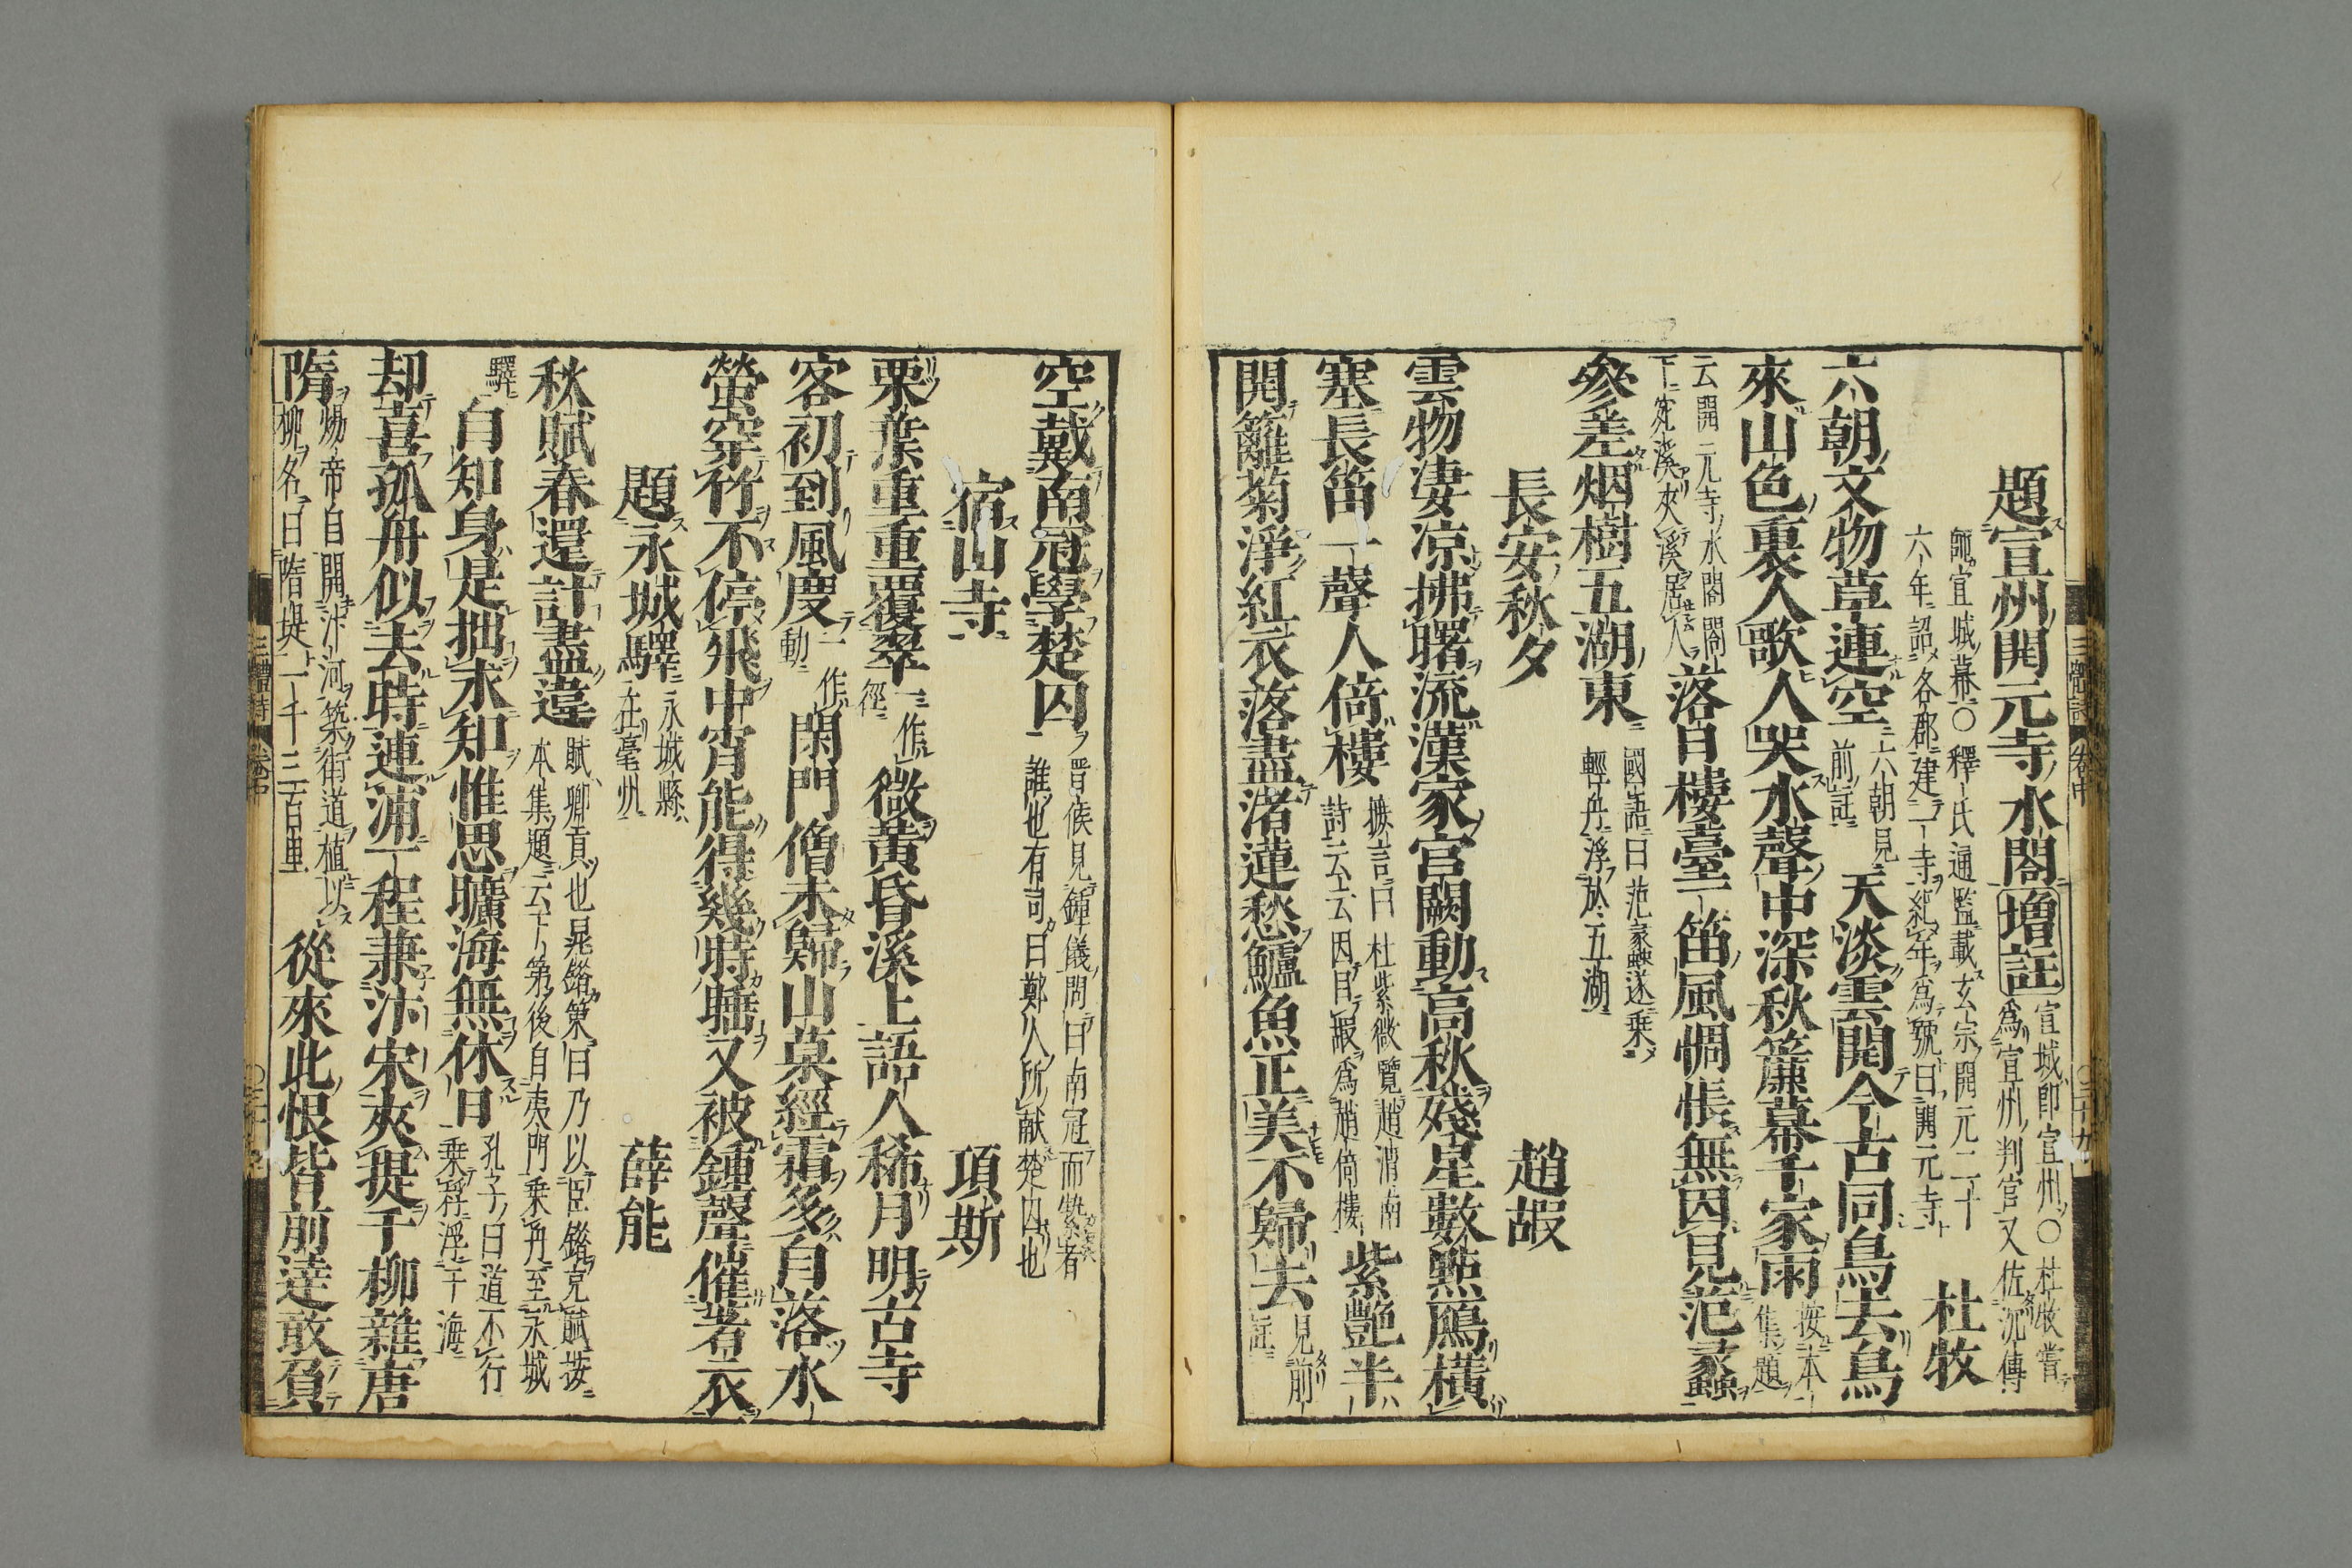 題宣州開元寺水閣 増註 宣城即宣州〇杜牧嘗為宣州判官又佐沈傳
師宣城幕〇釋氏通鑑載玄宗開元二十六年詔各郡建一寺紀年為號曰開元寺 杜牧
六朝文物草連空 六朝見前註 天淡雲閑今古同鳥去鳥
來山色裏人歌人哭水聲中深秋簾幕千家雨 按本集題
云開元寺水閣閣下宛溪夾溪居人 落日樓臺一笛風惆悵無因見范蠡
參差烟樹五湖東 國語曰范蠡遂乗輕舟浮於五湖
長安秋夕 趙嘏
雲物凄凉拂曙流漢家宮闕動高秋殘星數點鴈橫
塞長笛一聲人倚樓 摭言曰杜紫微覽趙渭南詩云云因目嘏為趙倚樓 紫艶半
開籬菊淨紅衣落盡渚蓮愁鱸魚正美不歸去 見前註
三體詩 卷中
空戴南冠學楚囚 晋侯見鍾儀問曰南冠而縶者誰也有司曰鄭人所献楚囚也
宿山寺 項斯
栗葉重重覆翠 一作徑 微黄昏溪上語人稀月明古寺
客初到風度 一作動 閑門僧未歸山菓經霜多自落水
螢穿竹不停飛中宵能得幾時睡又被鍾聲催著衣
題永城驛 永城縣在亳州 薛能
秋賦春還計盡違 賦郷貢也晁錯策曰乃以臣錯充賦按本集題云下第後自夷門乗舟至永城
驛 自知身是拙求知惟思曠海無休日 孔子曰道不行乗桴浮于海
却喜孤舟似去時連浦一程兼汴宋夾堤千柳雜唐
隋 煬帝自開汴河築街道植以柳名曰隋堤一千三百里 從來此恨皆前達敢負
三體詩 卷中